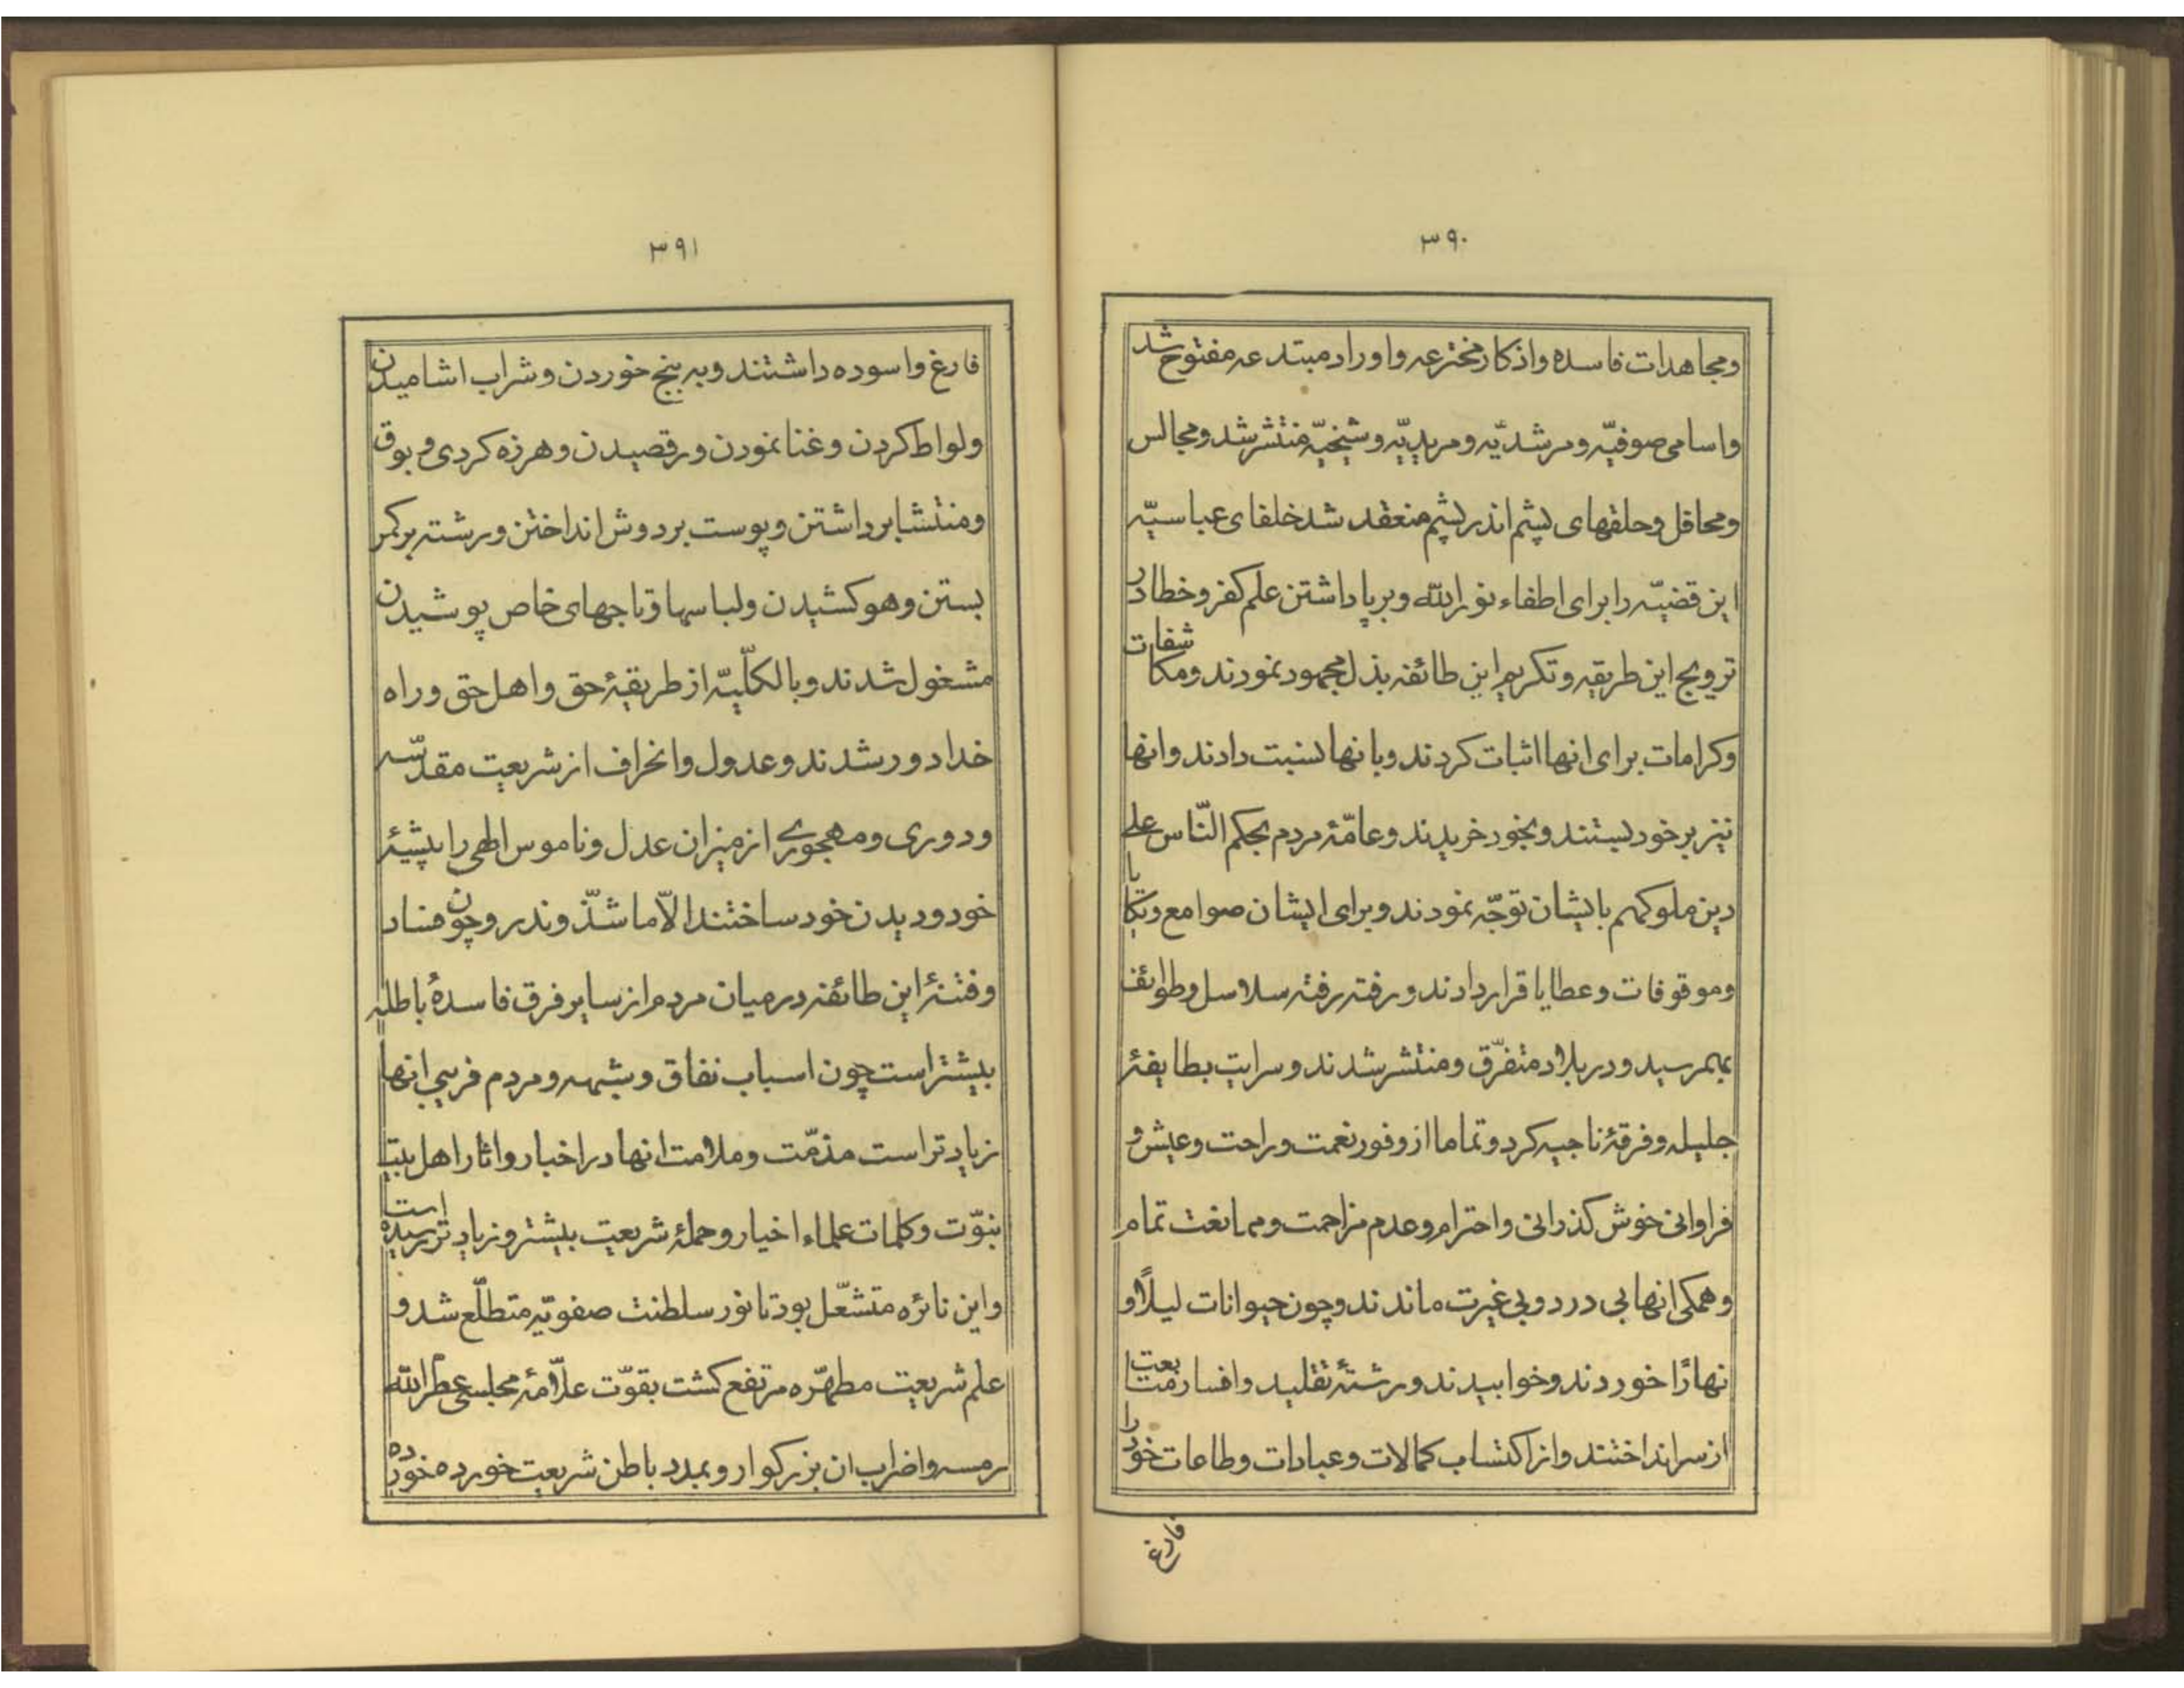 ۳۹۰
ومجاهدات فاسده واذکار مخترعه واوراد مبتدعه مفتوح شد
واسامی صوفیّه ومرشدیّه ومریدیّه وشیخیّه منتشر شد ومجالس
ومحافل وحلقهای پشم اندر پشم منعقد شد خلفای عباسیّه
این قضیّه را برای اطفاء نور الله وبرپا داشتن علم کفر وخطا در
ترویج این طریقه وتکریم این طائفه بذل مجهود نمودند ومکاشفات
وکرامات برای انها اثبات کردند وبانها نسبت دادند وانها
نیز بر خود بستند وبخود خریدند وعامّهٔ مردم بحکم النّاس علی
دین ملوکهم بایشان توجّه نمودند وبرای ایشان صوامع وتکایا
وموقوفات وعطایا قرار دادند ورفته رفته سلاسل وطوائف
بهمرسید ودر بلاد متفرّق ومنتشر شدند وسرایت بطایفهٔ
جلیله وفرقهٔ ناجیه کرد وتماما از وفور نعمت وراحت وعیش و
فراوانی خوش کذرانی واحترام وعدم مزاحمت وممانعت تمام
وهمکی انها بی درد وبی غیرت ماندند وچون حیوانات لیلًا و
نهارًا خوردند وخوابیدند ورشتهٔ تقلید وافسار متابعت
از سر انداختند واز اکتساب کمالات وعبادات وطاعات خود را
فارغ
۳۹۱
فارغ واسوده داشتند وبه بنج خوردن وشراب اشامیدن
ولواط کردن وغنا نمودن ورقصیدن وهرزه کردی وبوق
ومنتشا برداشتن وپوست بر دوش انداختن ورشته بر کمر
بستن وهو کشیدن ولباسها وتاجهای خاص پوشیدن
مشغول شدند وبالکلّیّه از طریقهٔ حق واهل حق وراه
خدا دور شدند وعدول وانحراف از شریعت مقدّسه
ودوری ومهجوری از میزان عدل وناموس الهی را پیشهٔ
خود ودیدن خود ساختند الّا ما شذّ وندر وچون فساد
وفتنهٔ این طائفه در میان مردم از سایر فرق فاسدهٔ باطله
بیشتر است چون اسباب نفاق وشبهه ومردم فریبی انها
زیادتر است مذمّت وملامت انها در اخبار واثار اهل بیت
نبوّت وکلمات علماء اخیار وحملهٔ شریعت بیشتر وزیادتر رسیده است
واین نائره متشعّل بود تا نور سلطنت صفویّه متطلّع شد و
علم شریعت مطهّره مرتفع کشت بقوّت علّامهٔ مجلسی عطّر الله
رمسه واضراب ان بزرکوار وبمدد باطن شریعت خورده خورده